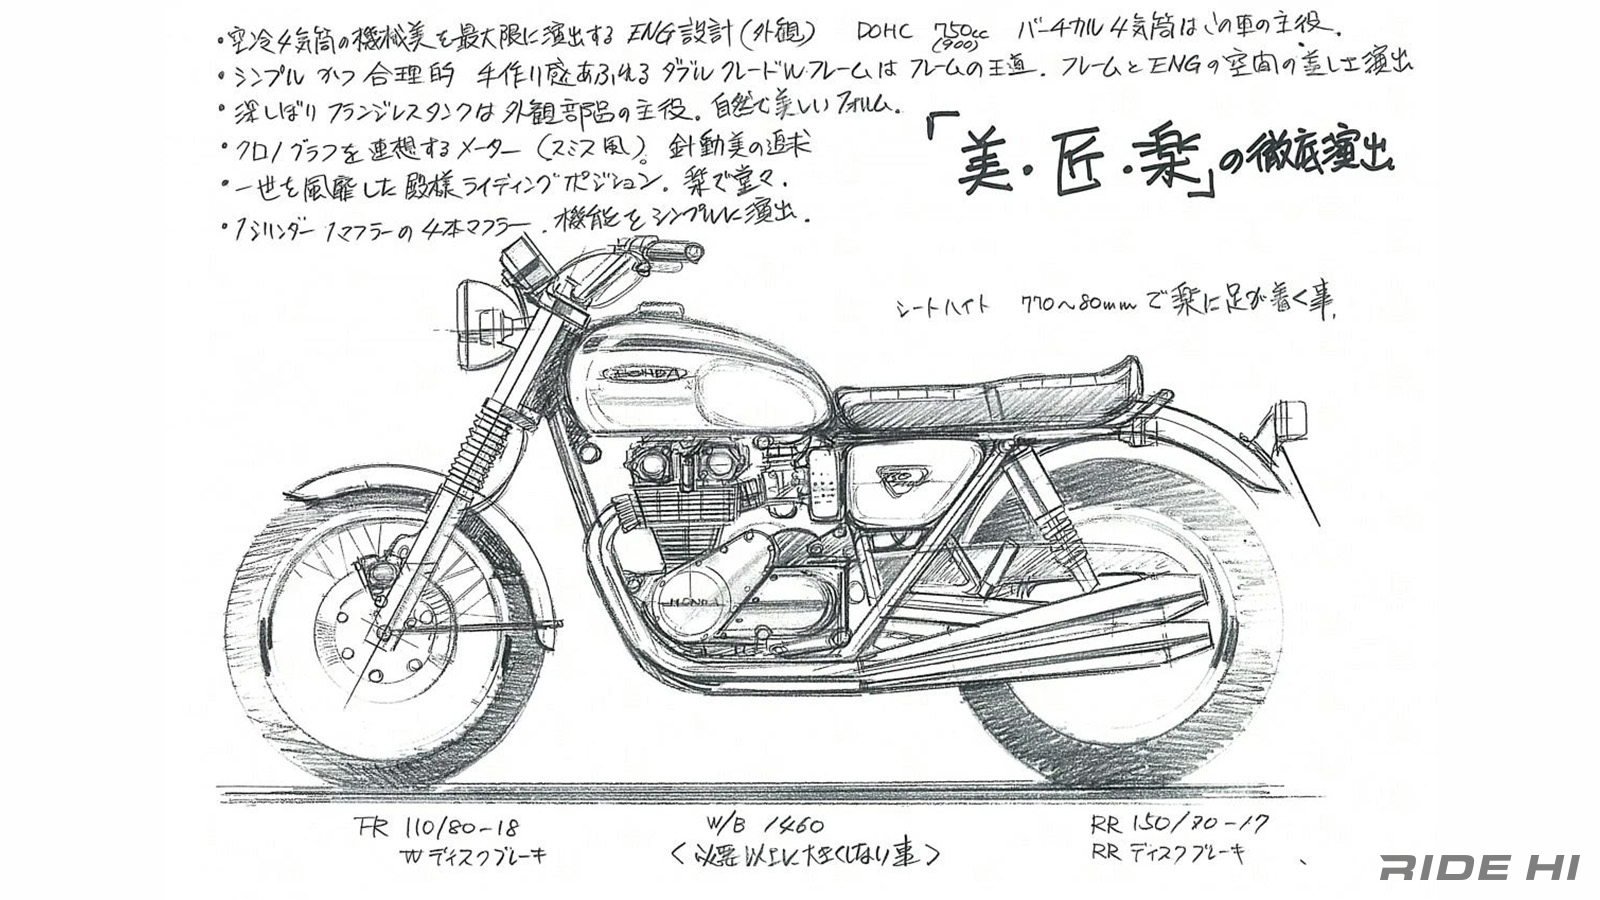 ・空冷4気筒の機械美を最大限に演出する ENG設計(外観) DOHC 750cc バーチカル4気筒はこの車の主役.
(900)
・シンプル かつ 合理的 手作り感あふれる ダブルクレードルフレームは フレームの王道. フレームとENGの空間の美しさ演出
・深しぼり フランジレスタンクは 外観部品の主役. 自然で美しいフォルム.
・クロノグラフを連想するメーター(スミス風)。針動美の追求
・一世を風靡した殿様ライディングポジション. 楽で堂々.
・1シリンダー 1マフラーの 4本マフラー. 機能をシンプルに演出.
「美・匠・楽」の徹底演出
シートハイト 770～80mmで楽に足が着く事.
HONDA
HONDA
FR 110/80-18
W ディスクブレーキ
W/B 1460
<必要以上に大きくしない事>
RR 150/70-17
RR ディスクブレーキ
RIDE HI